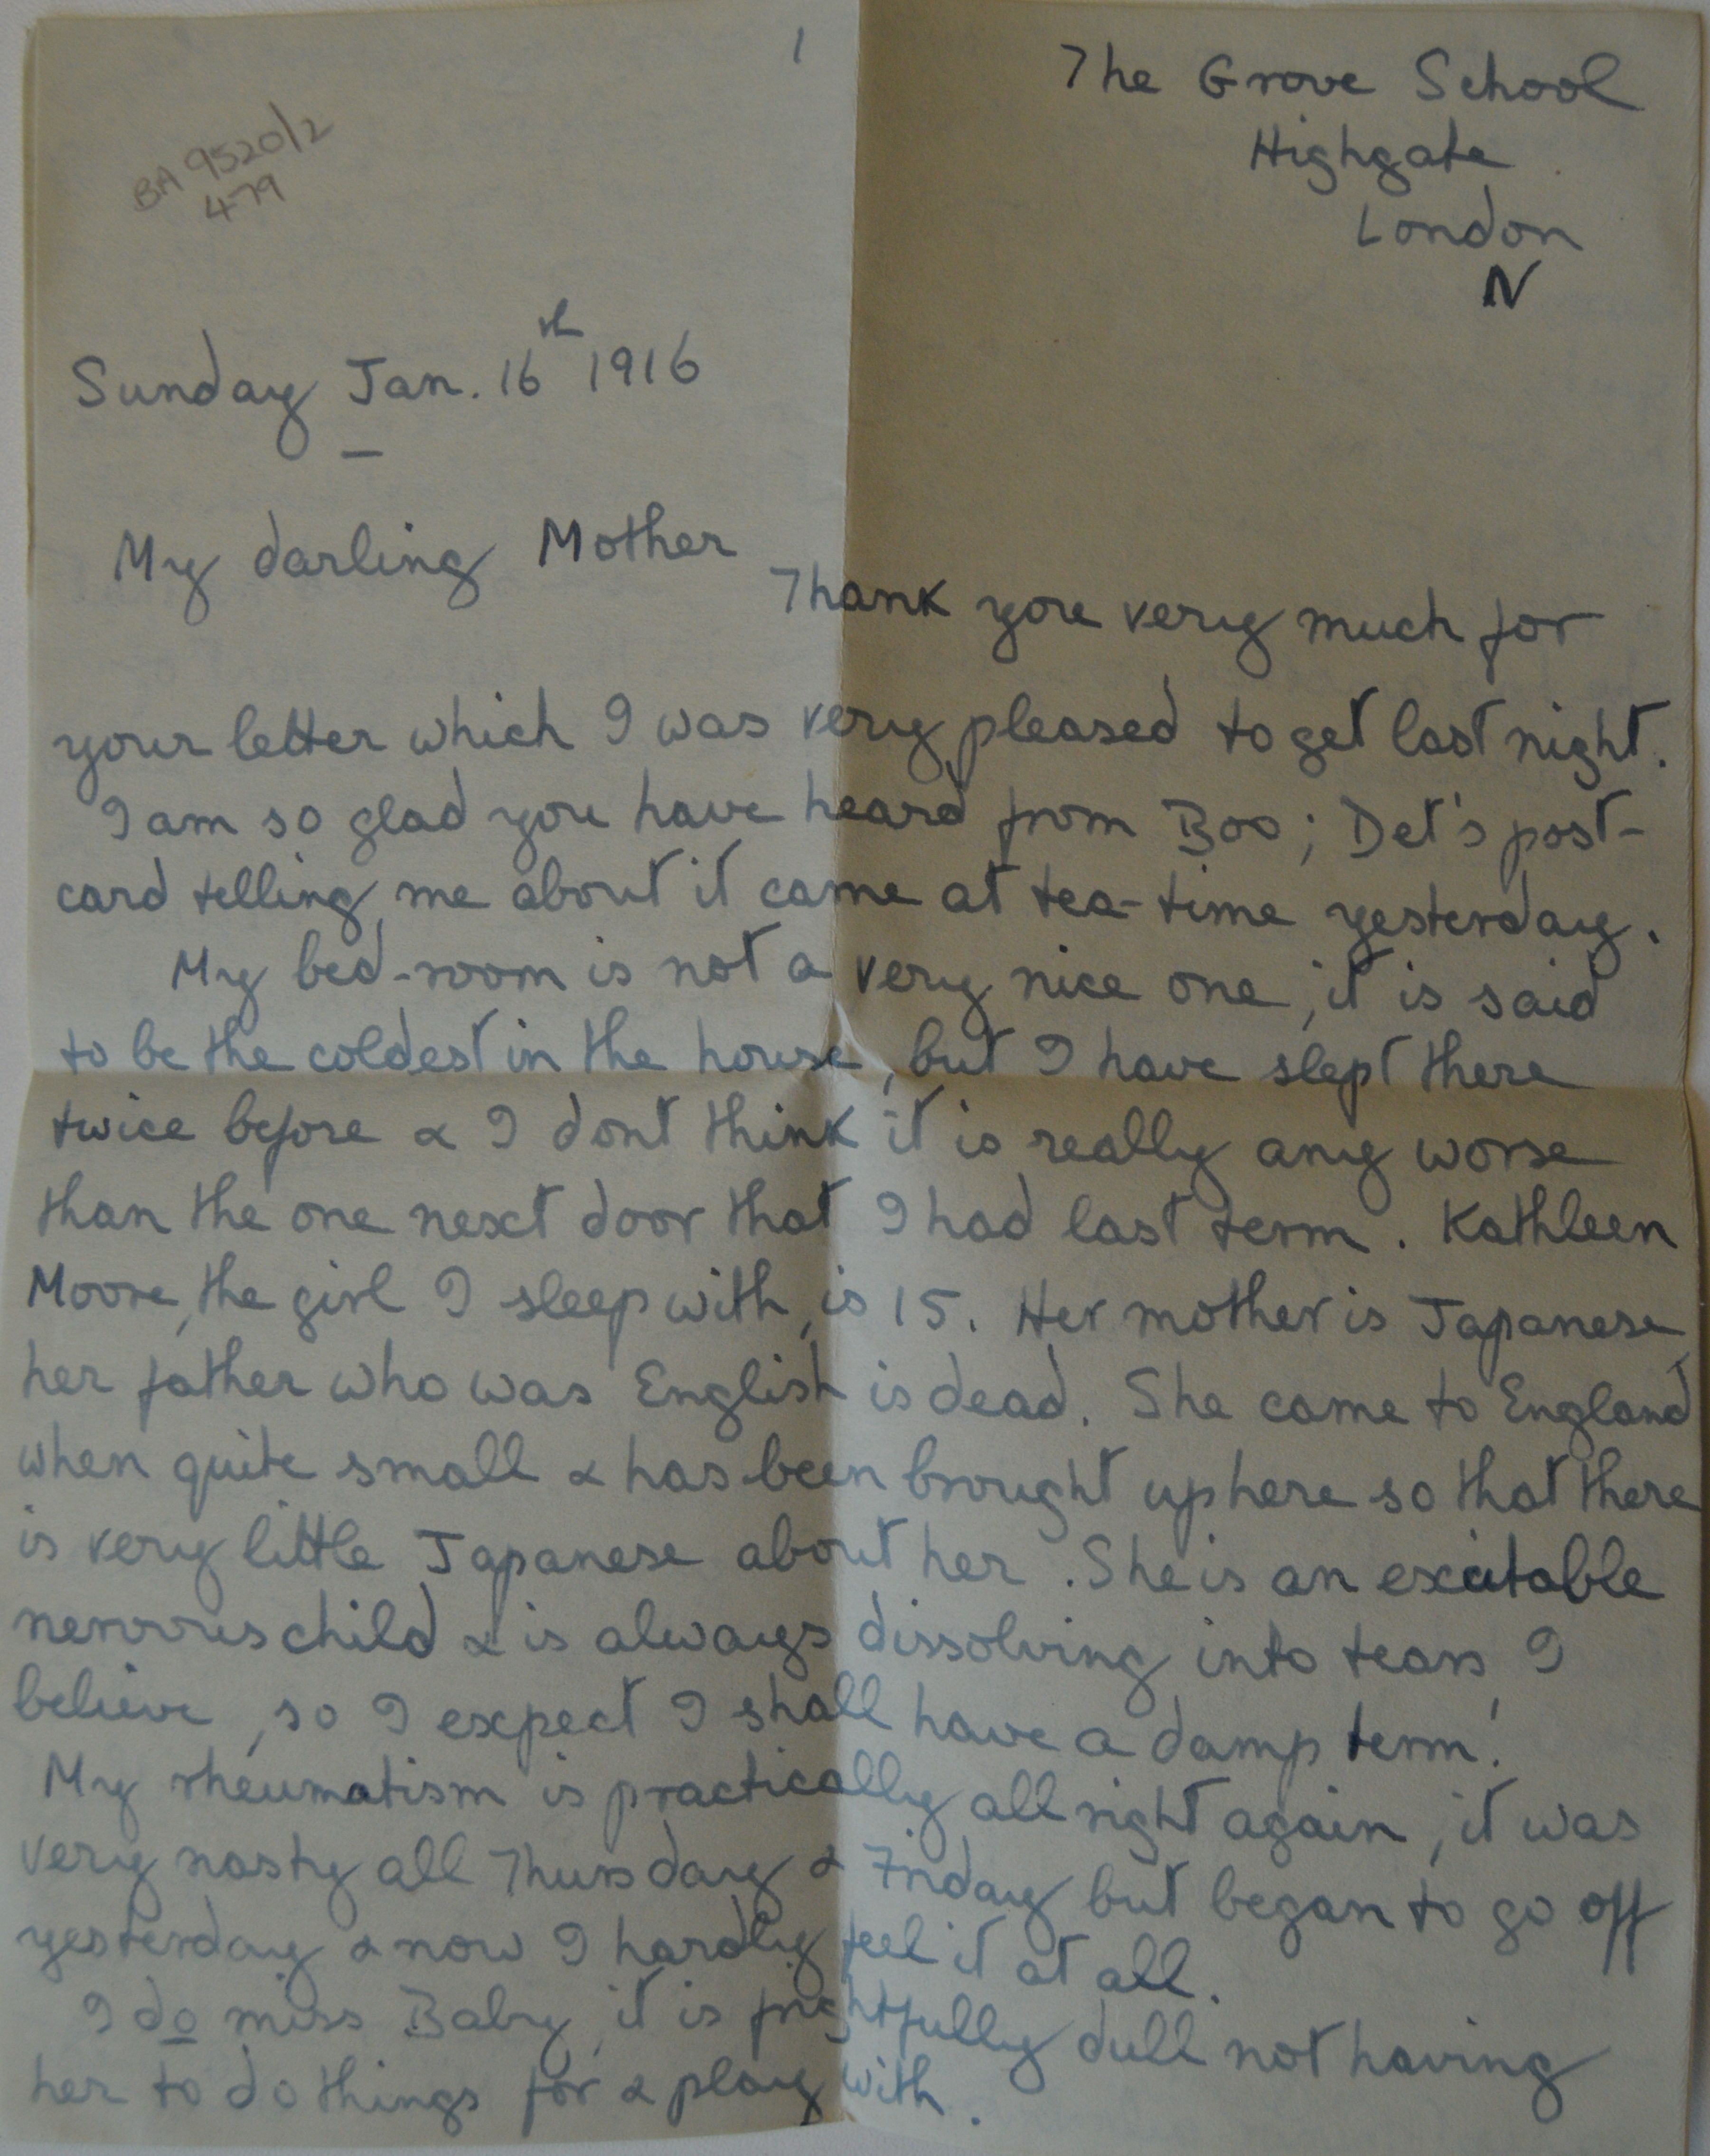 1
The Grove School
Highgate
London
N
BA 9520/2
479
Sunday Jan. 16th 1916
My darling Mother
Thank you very much for
your letter which I was very pleased to get last night.
I am so glad you have heard from Boo; Det's post-
card telling me about it came at tea-time yesterday.
My bed-room is not a very nice one, it is said
to be the coldest in the house, but I have slept there
twice before & I dont think it is really any worse
than the one next door that I had last term. Kathleen
Moore, the girl I sleep with, is 15. Her mother is Japanese,
her father who was English is dead. She came to England
when quite small & has been brought up here so that there
is very little Japanese about her. She is an excitable
nervous child & is always dissolving into tears, I
believe, so I expect I shall have a damp term!
My rheumatism is practically all right again, it was
very nasty all Thursday & Friday but began to go off
yesterday & now I hardly feel it at all.
I do miss Baby, it is frightfully dull not having
her to do things for & play with.